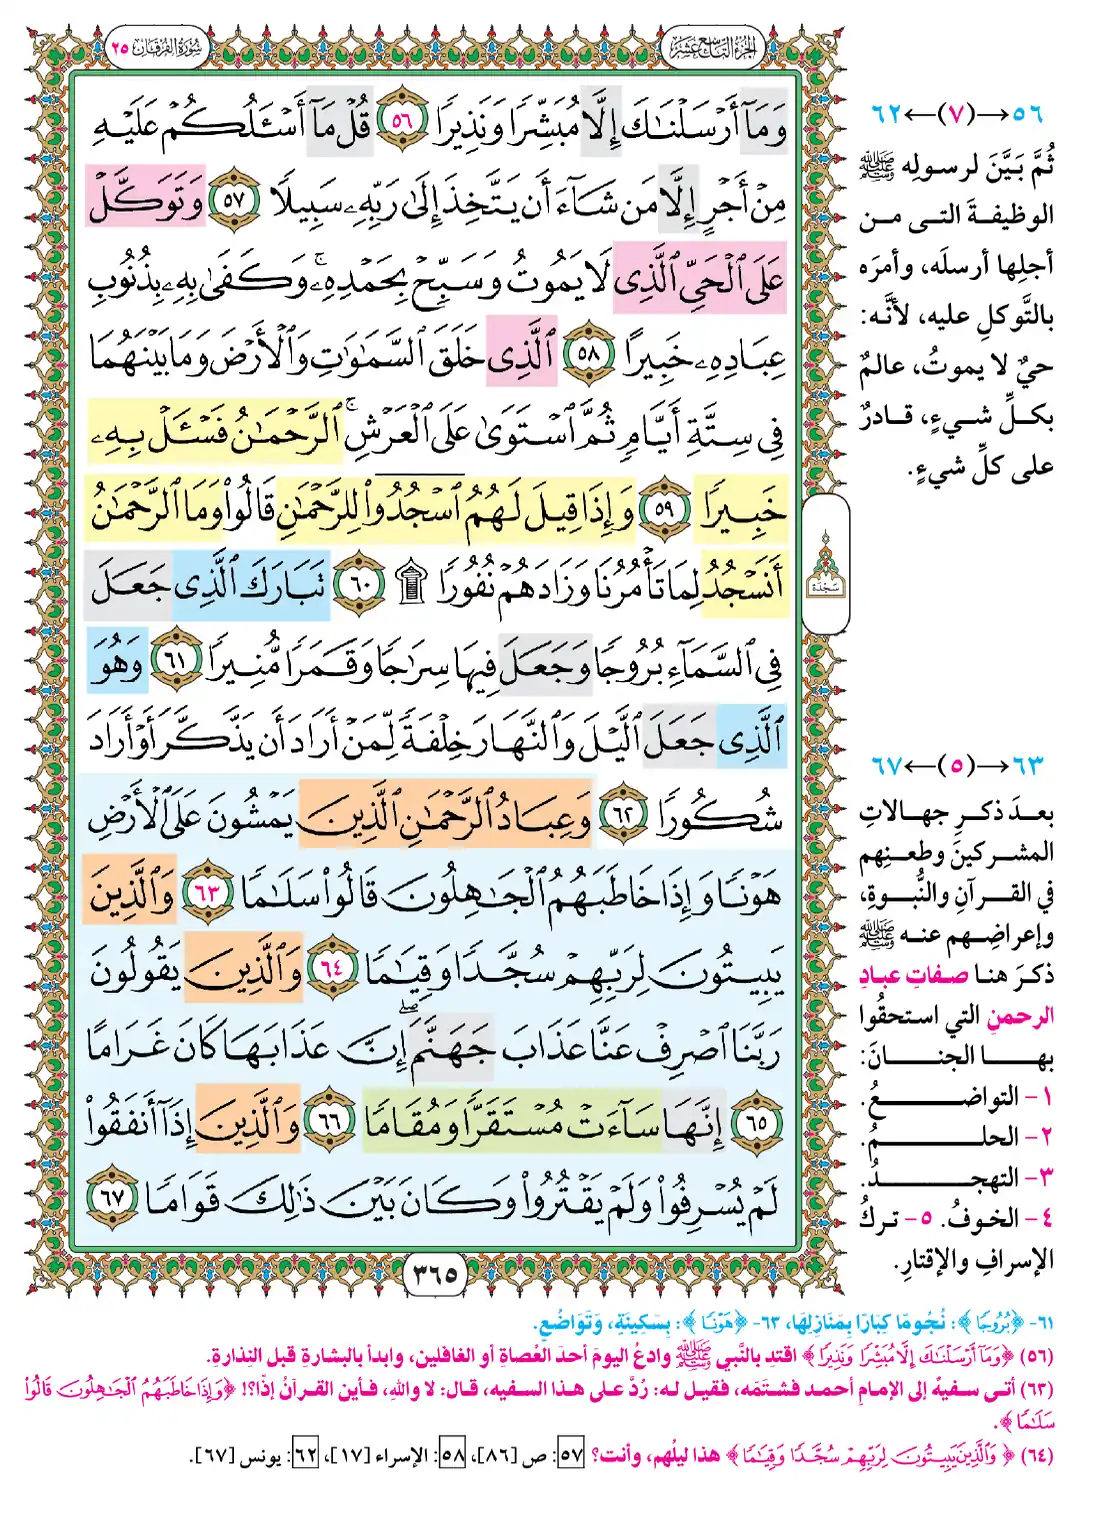 الجزء التاسع عشر
سورة الفرقان ٢٥
وَمَآ أَرْسَلْنَٰكَ إِلَّا مُبَشِّرًا وَنَذِيرًا ٥٦ قُلْ مَآ أَسْـَٔلُكُمْ عَلَيْهِ
مِنْ أَجْرٍ إِلَّا مَن شَآءَ أَن يَتَّخِذَ إِلَىٰ رَبِّهِۦ سَبِيلًا ٥٧ وَتَوَكَّلْ
عَلَى ٱلْحَىِّ ٱلَّذِى لَا يَمُوتُ وَسَبِّحْ بِحَمْدِهِۦ ۚ وَكَفَىٰ بِهِۦ بِذُنُوبِ
عِبَادِهِۦ خَبِيرًا ٥٨ ٱلَّذِى خَلَقَ ٱلسَّمَٰوَٰتِ وَٱلْأَرْضَ وَمَا بَيْنَهُمَا
فِى سِتَّةِ أَيَّامٍ ثُمَّ ٱسْتَوَىٰ عَلَى ٱلْعَرْشِ ۚ ٱلرَّحْمَٰنُ فَسْـَٔلْ بِهِۦ
خَبِيرًا ٥٩ وَإِذَا قِيلَ لَهُمُ ٱسْجُدُوا۟ لِلرَّحْمَٰنِ قَالُوا۟ وَمَا ٱلرَّحْمَٰنُ
أَنَسْجُدُ لِمَا تَأْمُرُنَا وَزَادَهُمْ نُفُورًا ۩ ٦٠ تَبَارَكَ ٱلَّذِى جَعَلَ
فِى ٱلسَّمَآءِ بُرُوجًا وَجَعَلَ فِيهَا سِرَٰجًا وَقَمَرًا مُّنِيرًا ٦١ وَهُوَ
ٱلَّذِى جَعَلَ ٱلَّيْلَ وَٱلنَّهَارَ خِلْفَةً لِّمَنْ أَرَادَ أَن يَذَّكَّرَ أَوْ أَرَادَ
شُكُورًا ٦٢ وَعِبَادُ ٱلرَّحْمَٰنِ ٱلَّذِينَ يَمْشُونَ عَلَى ٱلْأَرْضِ
هَوْنًا وَإِذَا خَاطَبَهُمُ ٱلْجَٰهِلُونَ قَالُوا۟ سَلَٰمًا ٦٣ وَٱلَّذِينَ
يَبِيتُونَ لِرَبِّهِمْ سُجَّدًا وَقِيَٰمًا ٦٤ وَٱلَّذِينَ يَقُولُونَ
رَبَّنَا ٱصْرِفْ عَنَّا عَذَابَ جَهَنَّمَ ۖ إِنَّ عَذَابَهَا كَانَ غَرَامًا
٦٥ إِنَّهَا سَآءَتْ مُسْتَقَرًّا وَمُقَامًا ٦٦ وَٱلَّذِينَ إِذَآ أَنفَقُوا۟
لَمْ يُسْرِفُوا۟ وَلَمْ يَقْتُرُوا۟ وَكَانَ بَيْنَ ذَٰلِكَ قَوَامًا ٦٧
٣٦٥
سجدة
٥٦→(٧)←٦٢
ثُمَّ بَيَّنَ لرسولِه ﷺ
الوظيفةَ التي من
أجلِها أرسلَه، وأمرَه
بالتَّوكلِ عليه، لأنَّه:
حيٌّ لا يموتُ، عالمٌ
بكلِّ شيءٍ، قادرٌ
على كلِّ شيءٍ.
٦٣→(٥)←٦٧
بعدَ ذكرِ جهالاتِ
المشركينَ وطعنِهم
في القرآنِ والنُّبوةِ،
وإعراضِهم عنه ﷺ
ذكرَ هنا صفاتِ عبادِ
الرحمنِ التي استحقُوا
بها الجنانَ:
١- التواضعُ.
٢- الحلمُ.
٣- التهجدُ.
٤- الخوفُ. ٥- تركُ
الإسرافِ والإقتارِ.
٦١- ﴿بُرُوجًا﴾: نُجُومًا كِبَارًا بِمَنَازِلِهَا، ٦٣- ﴿هَوْنًا﴾: بِسَكِينَةٍ، وَتَوَاضُعٍ.
(٥٦) ﴿وَمَآ أَرْسَلْنَٰكَ إِلَّا مُبَشِّرًا وَنَذِيرًا﴾ اقتدِ بالنَّبي ﷺ وادعُ اليومَ أحدَ العُصاةِ أو الغافلين، وابدأ بالبشارةِ قبل النذارةِ.
(٦٣) أتى سفيهٌ إلى الإمامِ أحمد فشتمَه، فقيل له: رُدَّ على هذا السفيه، قال: لا واللهِ، فأين القرآنُ إذًا؟! ﴿وَإِذَا خَاطَبَهُمُ ٱلْجَٰهِلُونَ قَالُوا۟
سَلَٰمًا﴾.
(٦٤) ﴿وَٱلَّذِينَ يَبِيتُونَ لِرَبِّهِمْ سُجَّدًا وَقِيَٰمًا﴾ هذا ليلُهم، وأنت؟ ٥٧: ص [٨٦]، ٥٨: الإسراء [١٧]، ٦٢: يونس [٦٧].